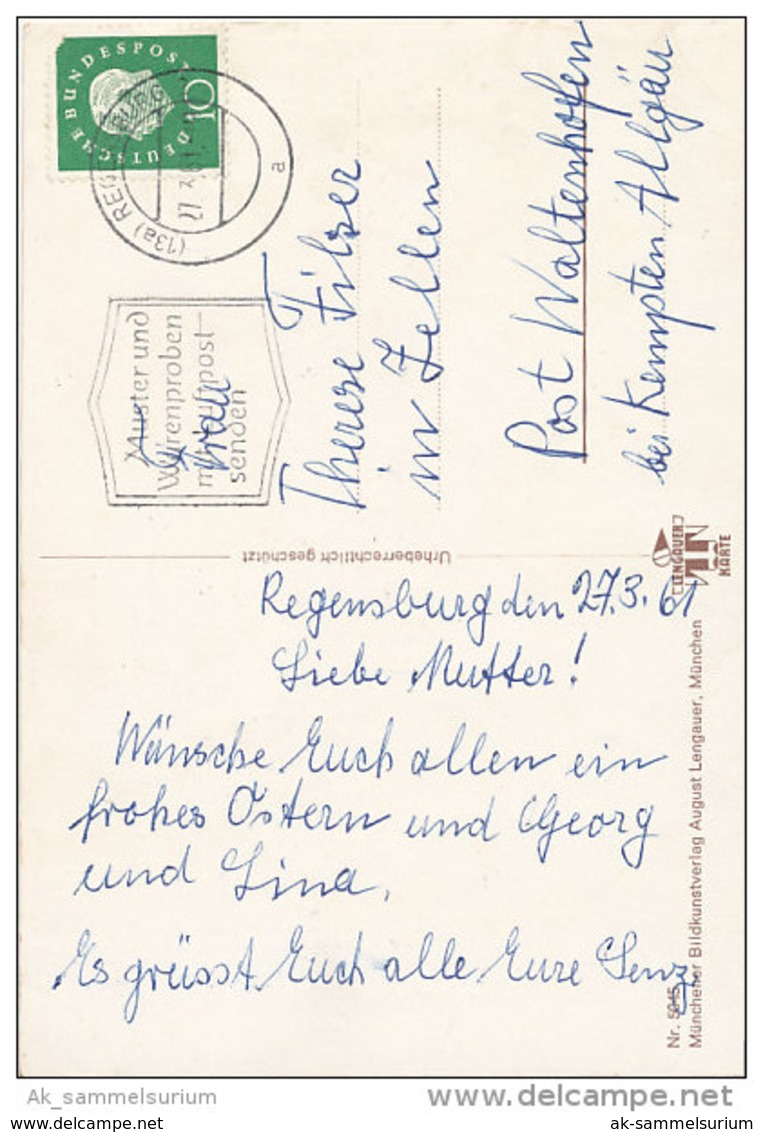 DEUTSCHE BUNDESPOST
10
(13a) REGENSBURG
27.3.61
a
Muster und
Warenproben
mit Luftpost
senden
Frau
Therese Filser
in Zellen
Post Waltenhofen
bei Kempten Allgäu
Urheberrechtlich geschützt
LENGAUER
KARTE
Regensburg den 27.3.61
Liebe Mutter!
Wünsche Euch allen ein
frohes Ostern und Georg
und Lina.
Es grüsst Euch alle Eure Senz.
Nr. 5045
Münchener Bildkunstverlag August Lengauer, München
Ak_sammelsurium
www.delcampe.net
ak-sammelsurium